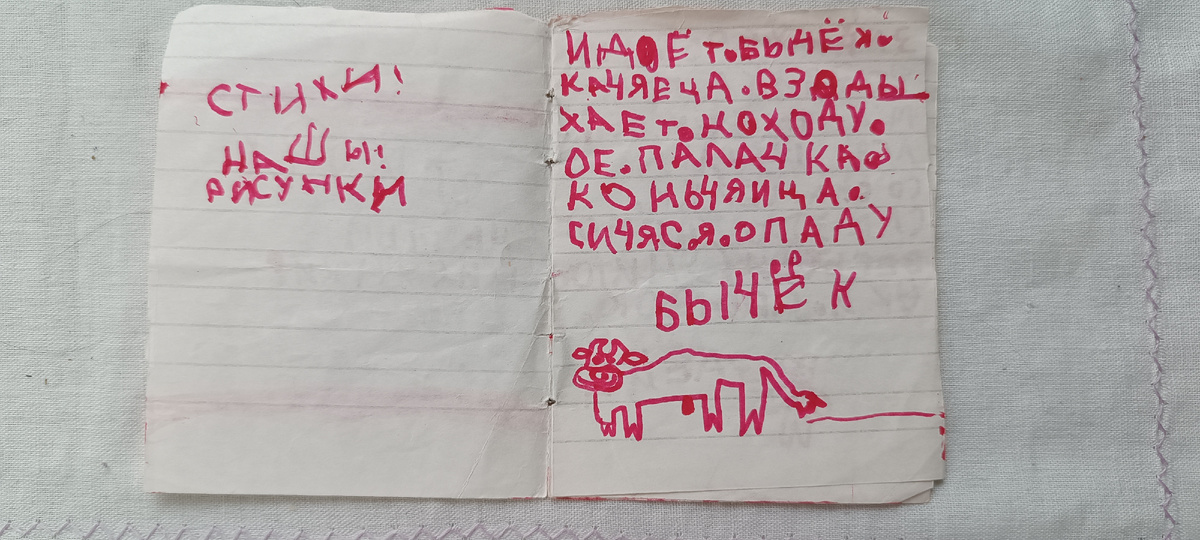 СТИХИ!
НАШЫ!
РИСУНКИ
ИДОЁ т.БЫЧЁК.
КАЧЯЕЦА.ВЗОДЫ
ХАЕТ.НОХОДУ.
ОЕ.ПАЛАЧКАО
КОНЫЧЯИЦА.
СИЧЯСЯ.ОПАДУ
БЫЧЁК